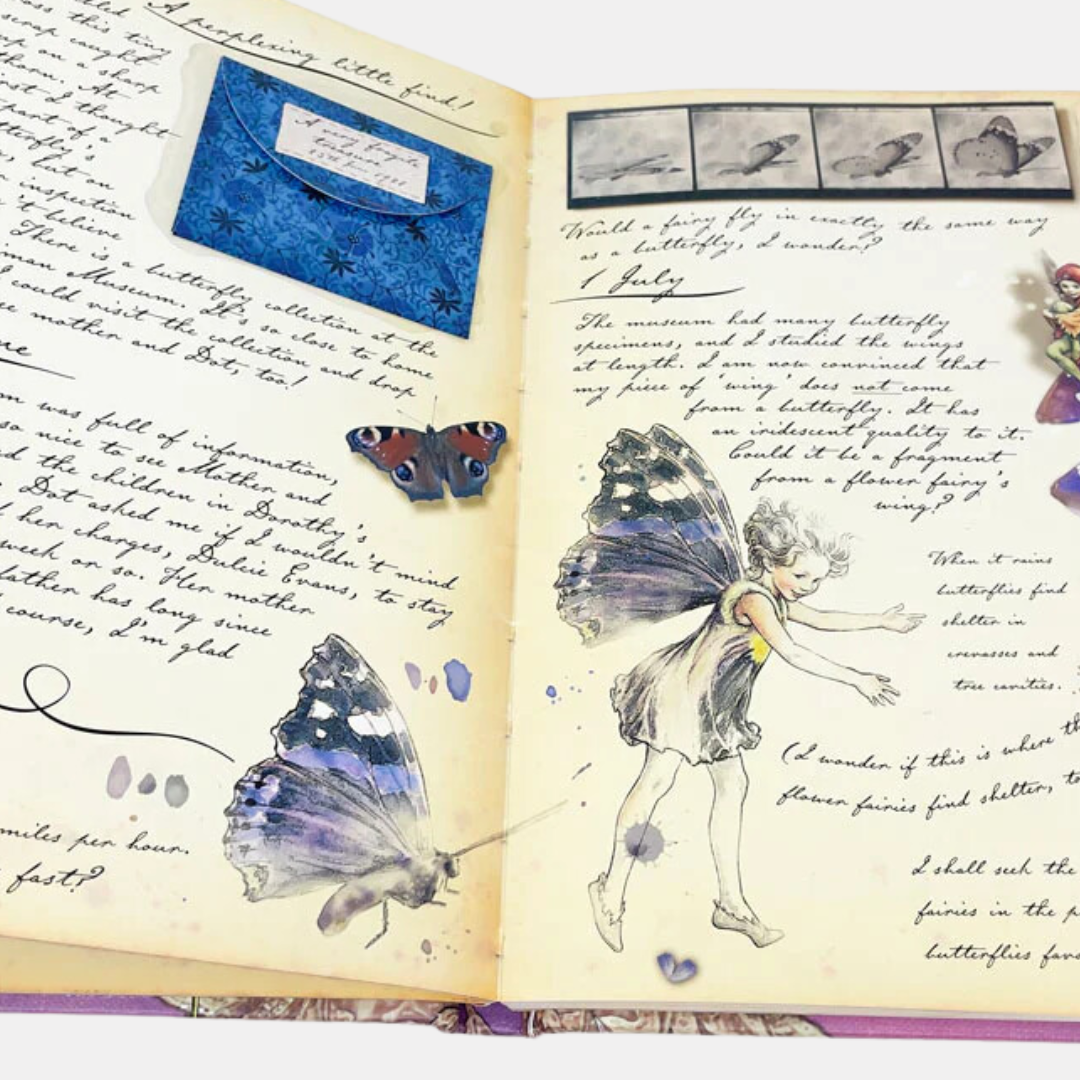 A perplexing little find!
this tiny
scrap caught
up on a sharp
thorn. At
first I thought
part of a
butterfly's
, but on
inspection
n't believe
There is a butterfly collection at the
Museum. It's so close to home
I could visit the collection and drop
see mother and Dot, too!
A very fragile
treasure
was full of information,
so nice to see Mother and
the children in Dorothy's
Dot asked me if I wouldn't mind
her charges, Dulcie Evans, to stay
week or so. Her mother
father has long since
course, I'm glad
miles per hour.
fast?
Would a fairy fly in exactly the same way
as a butterfly, I wonder?
1 July
The museum had many butterfly
specimens, and I studied the wings
at length. I am now convinced that
my piece of 'wing' does not come
from a butterfly. It has
an iridescent quality to it.
Could it be a fragment
from a flower fairy's
wing?
When it rains
butterflies find
shelter in
crevasses and
tree cavities.
(I wonder if this is where th
flower fairies find shelter, to
I shall seek the
fairies in the p
butterflies favo